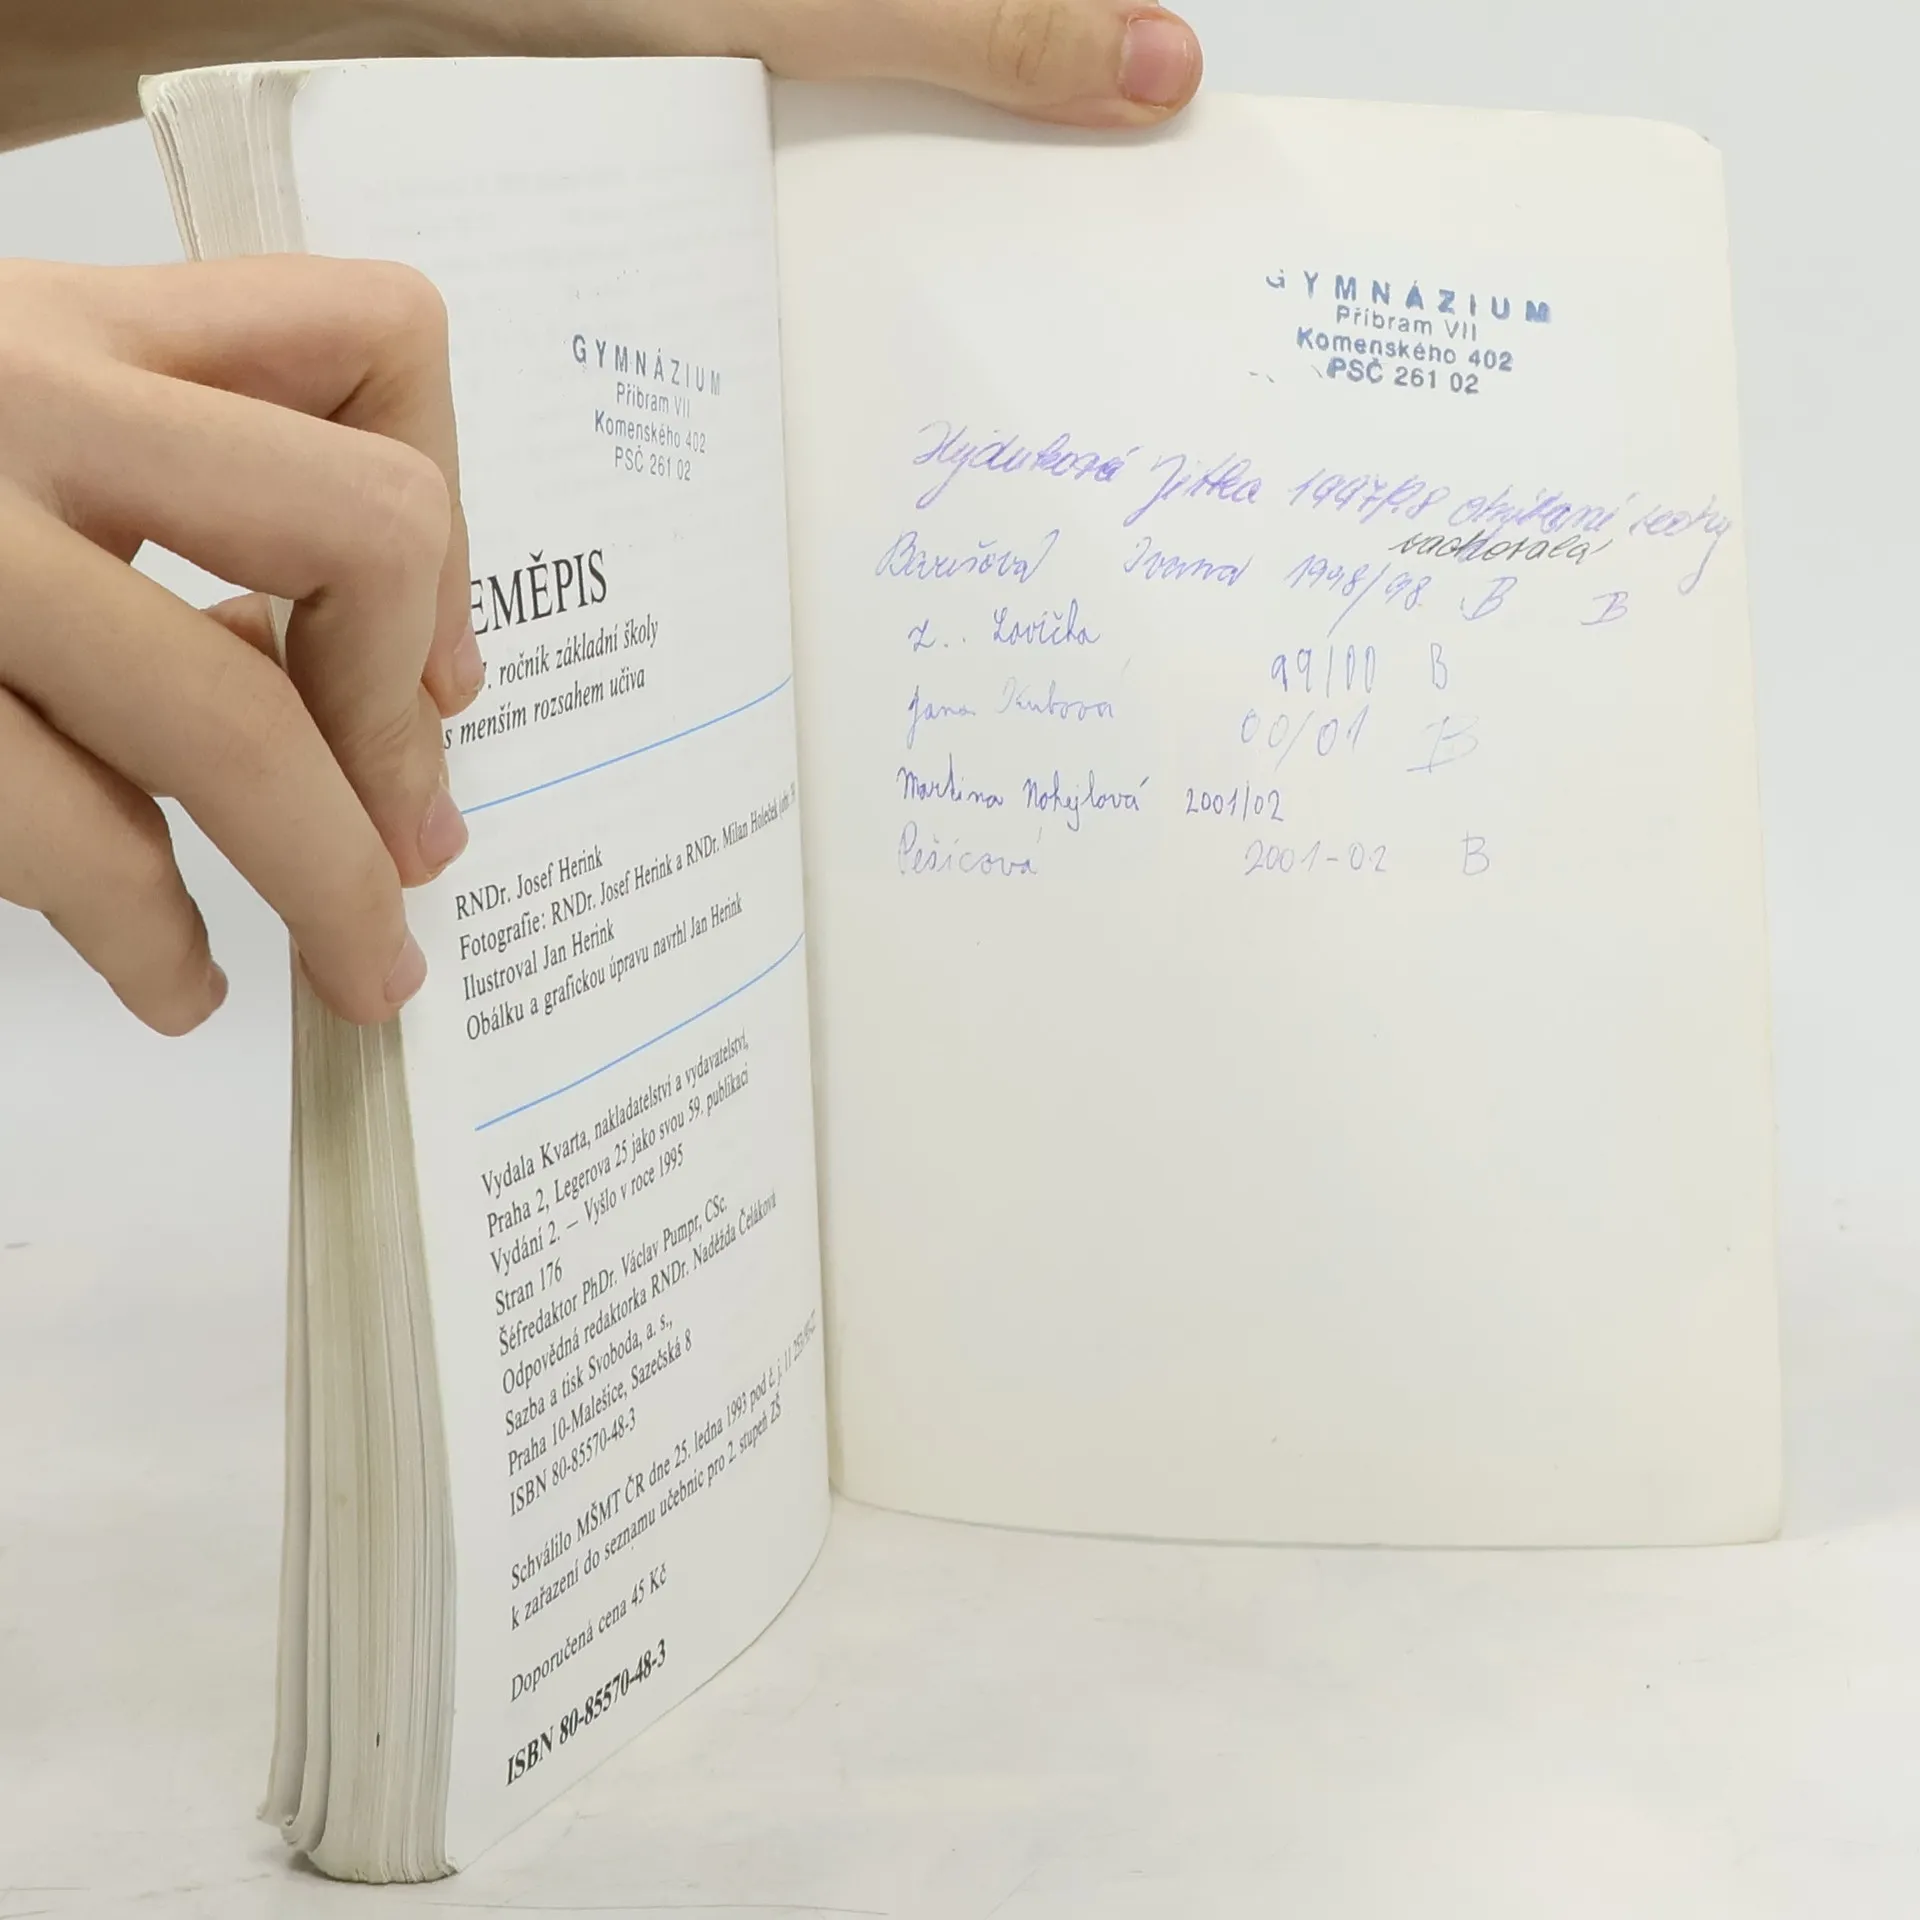 GYMNÁZIUM
Příbram VII
Komenského 402
PSČ 261 02
EMĚPIS
ročník základní školy
s menším rozsahem učiva
RNDr. Josef Herink
Fotografie: RNDr. Josef Herink a RNDr. Milan Holeček
Ilustroval Jan Herink
Obálku a grafickou úpravu navrhl Jan Herink
Vydala Kvarta, nakladatelství a vydavatelství,
Praha 2, Legerova 25 jako svou 59. publikaci
Vydání 2. – Vyšlo v roce 1995
Stran 176
Šéfredaktor PhDr. Václav Pumpr, CSc.
Odpovědná redaktorka RNDr. Naděžda Čeláková
Sazba a tisk Svoboda, a. s.,
Praha 10-Malešice, Sazečská 8
ISBN 80-85570-48-3
Schválilo MŠMT ČR dne 25. ledna 1993 pod č. j. 11
k zařazení do seznamu učebnic pro 2. stupeň ZŠ
Doporučená cena 45 Kč
ISBN 80-85570-48-3
GYMNÁZIUM
Příbram VII
Komenského 402
PSČ 261 02
Hyduková Jitka 1997/98
Ivana 1998/98 B B
Z.. Lovička 99/00 B
Jana Kubová 00/01 B
Martina Nohejlová 2001/02
Pešicová 2001-02 B